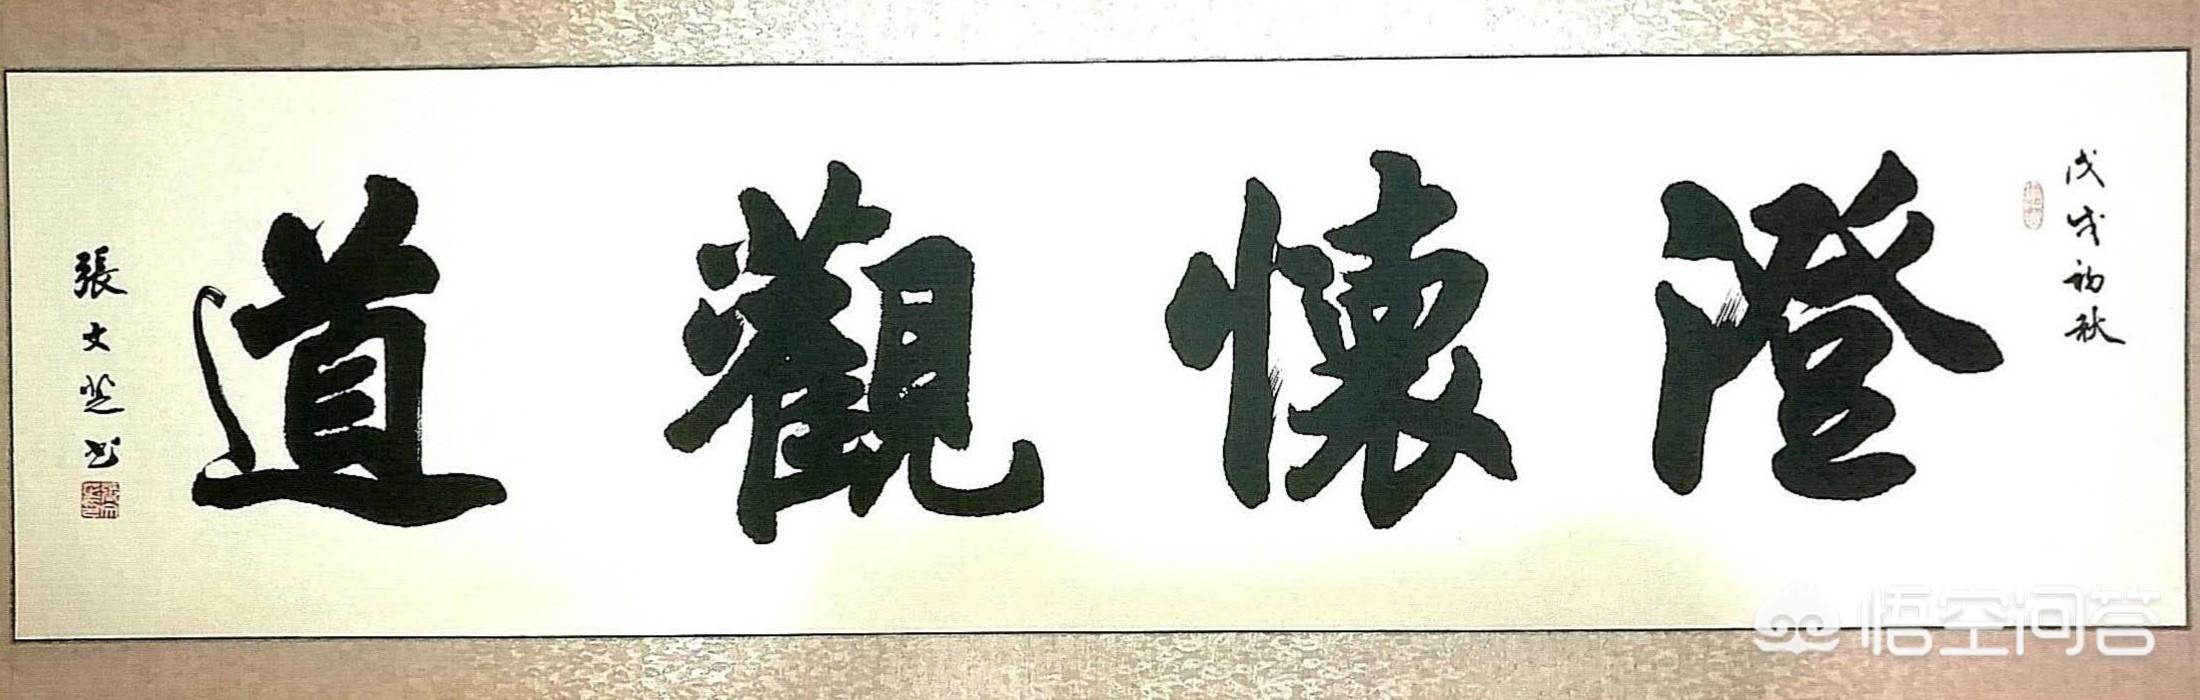 戊戌初秋
澄懷觀道
張文
書
悟空问答